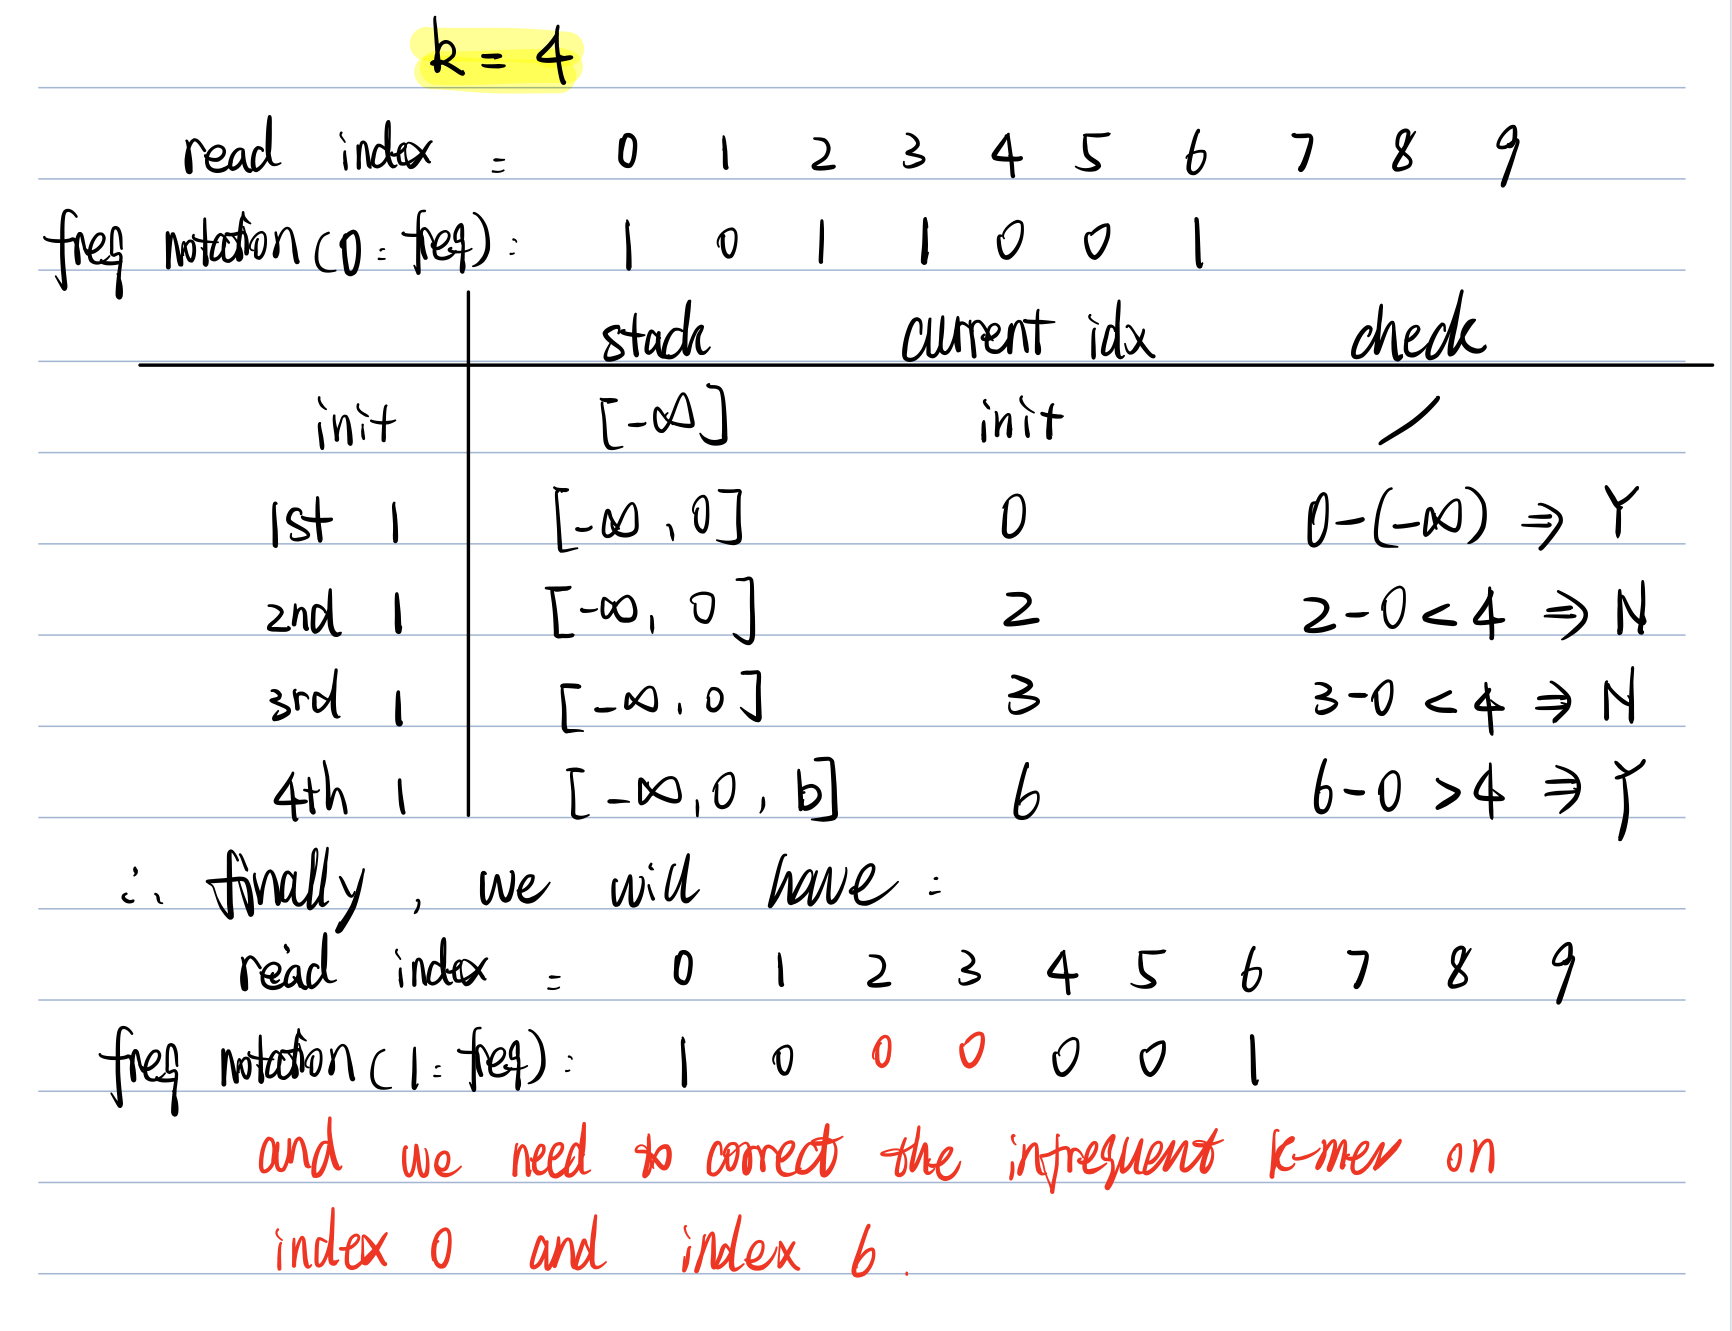 k = 4
read index : 0 1 2 3 4 5 6 7 8 9
freq notation (0 = freq) : 1 0 1 1 0 0 1
stack current idx check
init [-∞] init /
1st 1 [-∞, 0] 0 0-(-∞) ⇒ Y
2nd 1 [-∞, 0] 2 2-0 < 4 ⇒ N
3rd 1 [-∞, 0] 3 3-0 < 4 ⇒ N
4th 1 [-∞, 0, 6] 6 6-0 > 4 ⇒ Y
∴ finally, we will have :
read index : 0 1 2 3 4 5 6 7 8 9
freq notation (1 = freq) : 1 0 0 0 0 0 1
and we need to correct the infrequent k-mer on
index 0 and index 6.